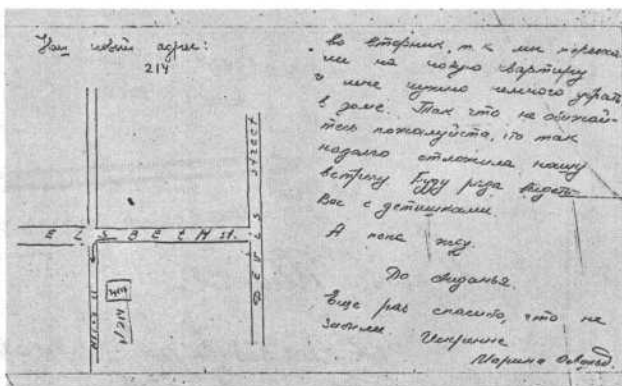 Наш новый адрес:
214
ELSBETH st.
street
№ 214
во вторник, т.к мы перееха-
ли на новую квартиру
и мне нужно немного убрать
в доме. Так что не обижай-
тесь пожалуйста, что так
надолго отложила нашу
встречу. Буду рада видеть
Вас с детишками.
А пока жду.
До свиданья.
Еще раз спасибо, что не
забыли.
Искренне
Марина Освальд.